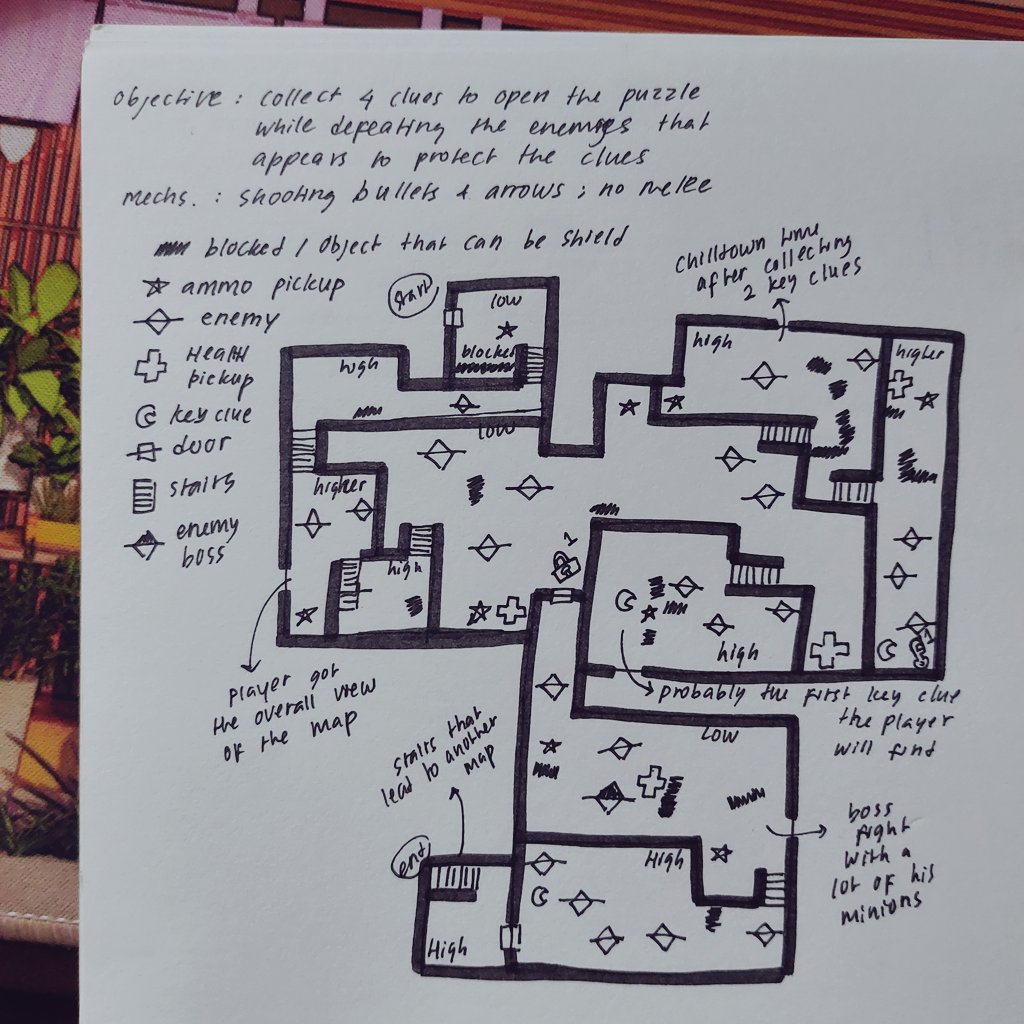 Objective : collect 4 clues to open the puzzle
while defeating the enemies that
appears to protect the clues
mechs. : shooting bullets & arrows ; no melee
blocked / object that can be shield
ammo pickup
enemy
Health
pickup
key clue
door
stairs
enemy
boss
start
low
blocked
high
low
higher
high
chilltown time
after collecting
2 key clues
high
higher
2
high
player got
the overall view
of the map
probably the first key clue
the player
will find
stairs that
lead to another
map
low
boss
fight
with a
lot of his
minions
end
High
High